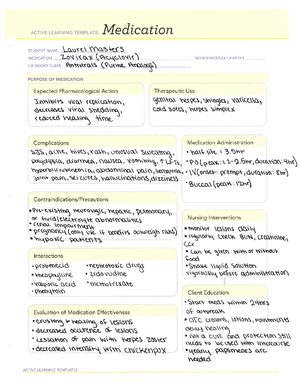 ACTIVE LEARNING TEMPLATE: Medication
STUDENT NAME Laurel Masters
MEDICATION Zovirax (Acyclovir)
REVIEW MODULE CHAPTER
CATEGORY CLASS Antivirals (Purine Analogs)
PURPOSE OF MEDICATION
Expected Pharmacological Action
Inhibits viral replication,
decreases viral shedding,
reduced healing time
Therapeutic Use
genital herpes, shingles, varicella,
cold sores, herpes simplex
Complications
SJS, acne, hives, rash, unusual sweating,
diarrhea, nausea, vomiting, ↑ LFTs,
abdominal pain,
joint pain, seizures, hallucinations, dizziness
Medication Administration
• half life = 3.5hr
• PO (peak: 1.5-2.5hr, duration: 4hr)
• IV (onset: prompt, duration: 8hr)
• Buccal (peak:
Contraindications/Precautions
• Pre-existing neurologic, hepatic, pulmonary,
or fluid/electrolyte abnormalities
• renal impairment
• pregnancy (only use if benefits outweigh risks)
• hypoxic patients
Nursing Interventions
• monitor lesions daily
• regularly check BUN, creatinine,
CCr
• Can be given with or without
food
• Shake liquid solution
vigorously before administration
Interactions
• probenecid
• nephrotoxic drugs
• theophylline
• zidovudine
• valproic acid
• methotrexate
• phenytoin
Client Education
• Start meds within 24hrs
of outbreak
• OTC creams, lotions, ointments
delay healing
• not a cure and protection still
needs to be used with intercourse
• yearly papsmears are
needed
Evaluation of Medication Effectiveness
• crusting & healing of lesions
• decreased occurence of lesions
• cessation of pain with herpes zoster
• decreased intensity with chickenpox
ACTIVE LEARNING TEMPLATES